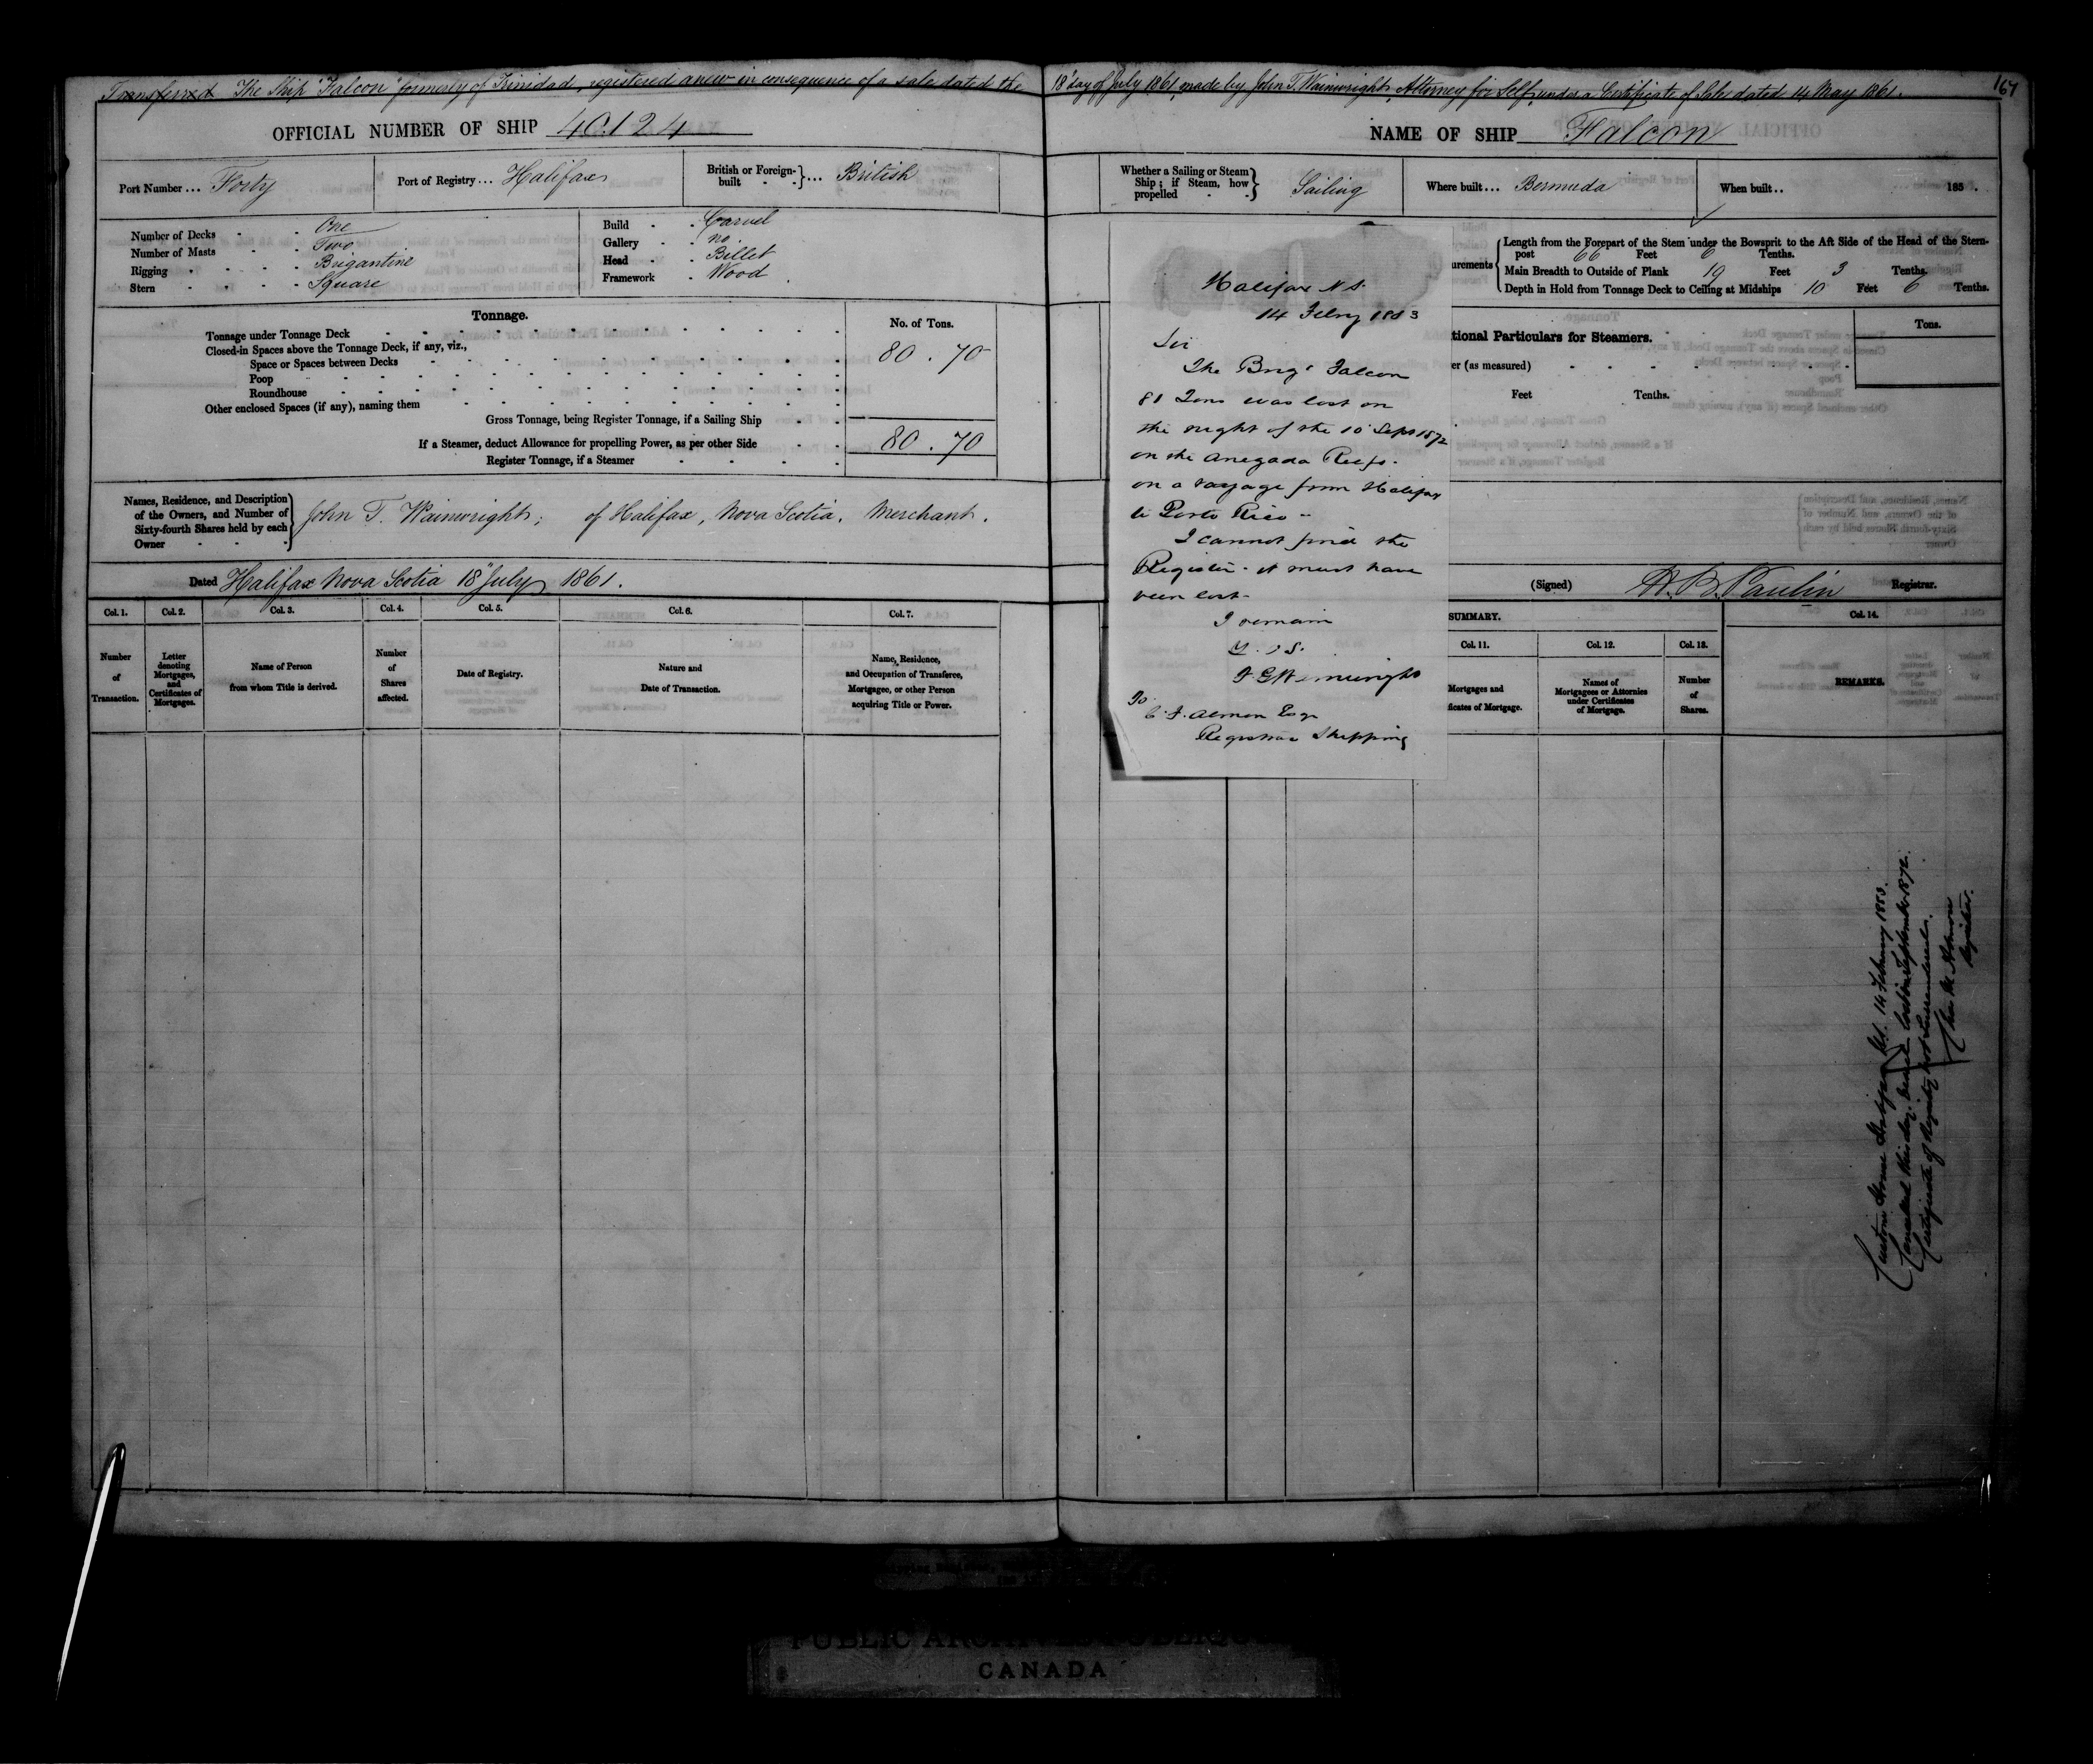 Transferred The Ship "Falcon" formerly of Trinidad, registered anew in consequence of a sale dated the 18' day of July 1861, made by John T. Wainwright, Attorney for Self, under a Certificate of Sale dated 14 May 1861.
164
OFFICIAL NUMBER OF SHIP 40.124
NAME OF SHIP Falcon
Port Number ... Forty
Port of Registry ... Halifax
British or Foreign-built ... British
Whether a Sailing or Steam Ship; if Steam, how propelled Sailing
Where built ... Bermuda
When built .. 185 .
Number of Decks One
Number of Masts Two
Rigging Brigantine
Stern Square
Build Carvel
Gallery no
Head Billet
Framework Wood
urements
Length from the Forepart of the Stem under the Bowsprit to the Aft Side of the Head of the Stern-
post 66 Feet 6 Tenths.
Main Breadth to Outside of Plank 19 Feet 3 Tenths.
Depth in Hold from Tonnage Deck to Ceiling at Midships 10 Feet 6 Tenths.
Tonnage.
No. of Tons.
Tonnage under Tonnage Deck
Closed-in Spaces above the Tonnage Deck, if any, viz.,
80 . 70
Space or Spaces between Decks
Poop
Roundhouse
Other enclosed Spaces (if any), naming them
Gross Tonnage, being Register Tonnage, if a Sailing Ship
80 . 70
If a Steamer, deduct Allowance for propelling Power, as per other Side
Register Tonnage, if a Steamer
tional Particulars for Steamers.
Tons.
er (as measured)
Feet Tenths.
Names, Residence, and Description
of the Owners, and Number of
Sixty-fourth Shares held by each
Owner
John T. Wainwright, of Halifax, Nova Scotia, Merchant.
Dated Halifax Nova Scotia 18" July 1861.
(Signed) H. B. Paulin Registrar.
Col. 1. Col. 2. Col. 3. Col. 4. Col. 5. Col. 6. Col. 7.
Number of Transaction.
Letter denoting Mortgages, and Certificates of Mortgages.
Name of Person from whom Title is derived.
Number of Shares affected.
Date of Registry.
Nature and Date of Transaction.
Name, Residence, and Occupation of Transferee, Mortgagee, or other Person acquiring Title or Power.
SUMMARY.
Col. 11. Col. 12. Col. 13. Col. 14.
Mortgages and
ficates of Mortgage.
Names of Mortgagees or Attornies under Certificates of Mortgage.
Number of Shares.
REMARKS.
Halifax N S.
14 Febry 1883
Sir
The Brigt Falcon
81 Tons was lost on
the night of the 10 Sept 1872
on the Anegada Reefs.
on a voyage from Halifax
to Porto Rico -
I cannot find the
Register - it must have
been lost -
I remain
To
Almon Esqr
Registrar Shipping
Custom House Halifax N.S. 14 February 1883.
Cancelled this day. Vessel lost in September 1872.
Certificate of Registry not surrendered.
Registrar.
PUBLIC ARCHIVES PUBLIQUES
CANADA